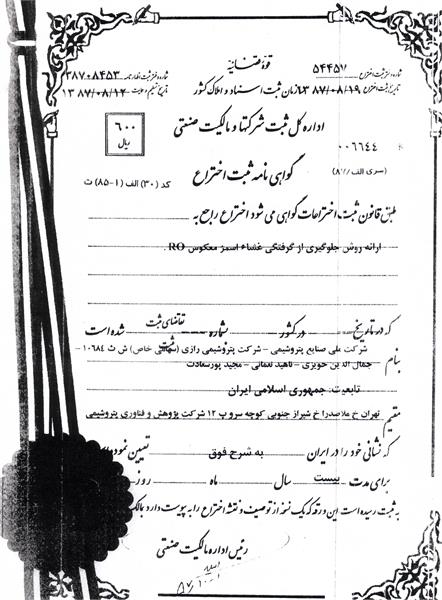 قوهٔ قضائیه
شماره دفتر ثبت اختراع ۵۴۴۵۷
شماره دفتر ثبت اظهارنامه ۳۸۷۰۸۴۵۳
تاریخ ثبت اختراع ۱۳۸۷/۰۸/۱۹
سازمان ثبت اسناد و املاک کشور
تاریخ تسلیم ۱۳۸۷/۰۸/۱۲
اداره کل ثبت شرکتها و مالکیت صنعتی
۶۰۰
ریال
۰۰۶۶۴۴
گواهی نامه ثبت اختراع
کد (۳۰) الف (۱-۸۵) ت
طبق قانون ثبت اختراعات گواهی می شود اختراع راجع به
ارائه روش جلوگیری از گرفتگی غشاء اسمز معکوس RO .
که در تاریخ در کشور شماره تقاضای ثبت شده است
بنام شرکت ملی صنایع پتروشیمی - شرکت پتروشیمی رازی (سهامی خاص) ش ث ۱۰۶۸۴ -
جمال الدین حویزی - ناهید نعمانی - مجید پورسادات
تابعیت: جمهوری اسلامی ایران
مقیم تهران خ ملاصدرا خ شیراز جنوبی کوچه سرو پ ۱۲ شرکت پژوهش و فناوری پتروشیمی
که نشانی خود را در ایران به شرح فوق تعیین نموده
برای مدت بیست سال ماه روز
به ثبت رسیده است این ورقه که یک نسخه از توصیف و نقشه اختراع را به پیوست دارد
رئیس اداره مالکیت صنعتی